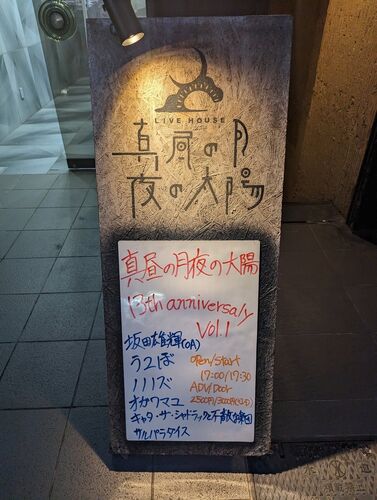 LIVE HOUSE
真昼の月
夜の太陽
真昼の月夜の太陽
13th anniversaly
Vol.1
坂田雄輝(OA)
うつぼ
ノノノズ
オガワマユ
キャタ・ザ・シャドラックと不敵な楽団
サルパラダイス
open/start
17:00/17:30
ADV/Door
2500円/3000円(+D)